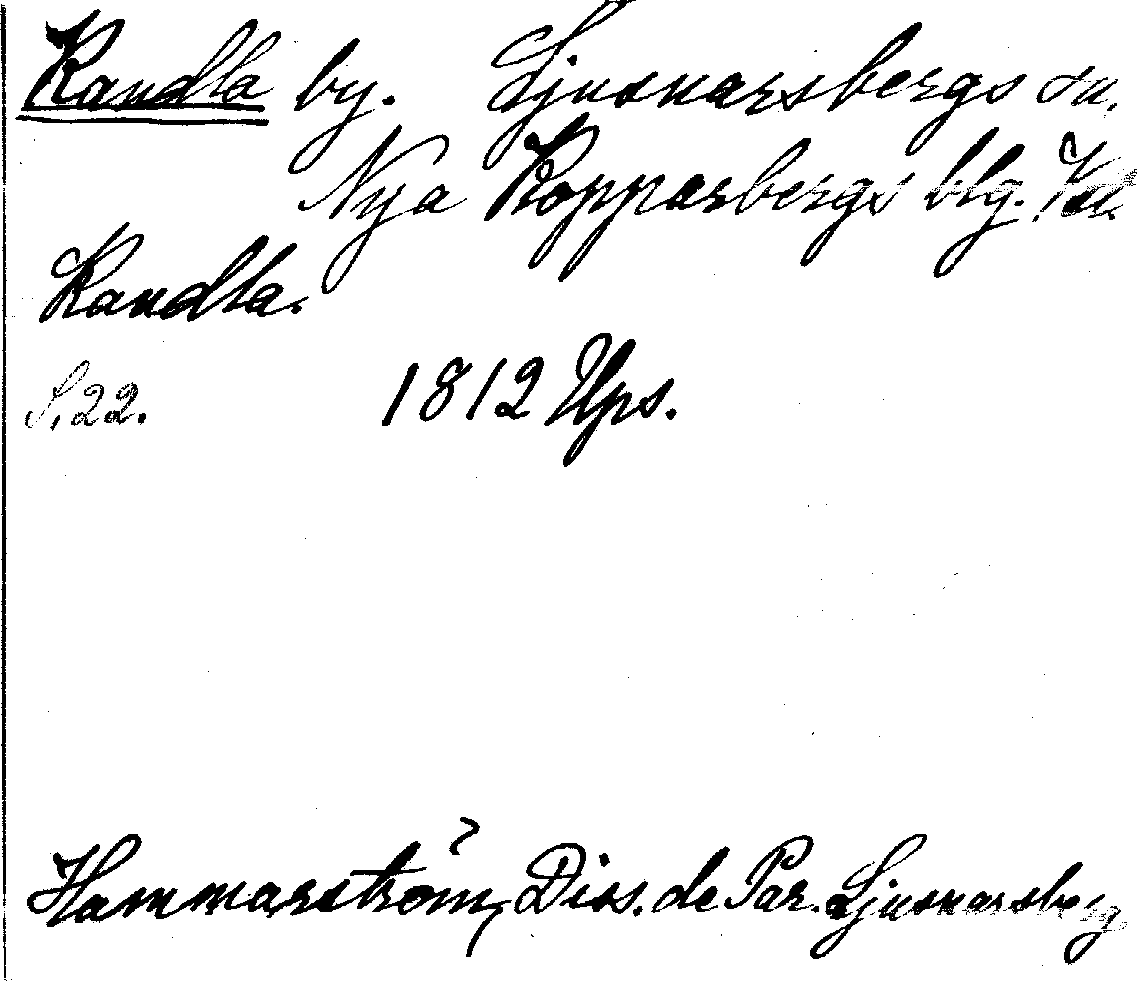 Kandla by. Ljusnarsbergs sn.
Nya Kopparbergs blg. Vstm.
Kandla.
S. 22. 1812 Ups.
Hammarström, Diss. de Par. Ljusnarsberg